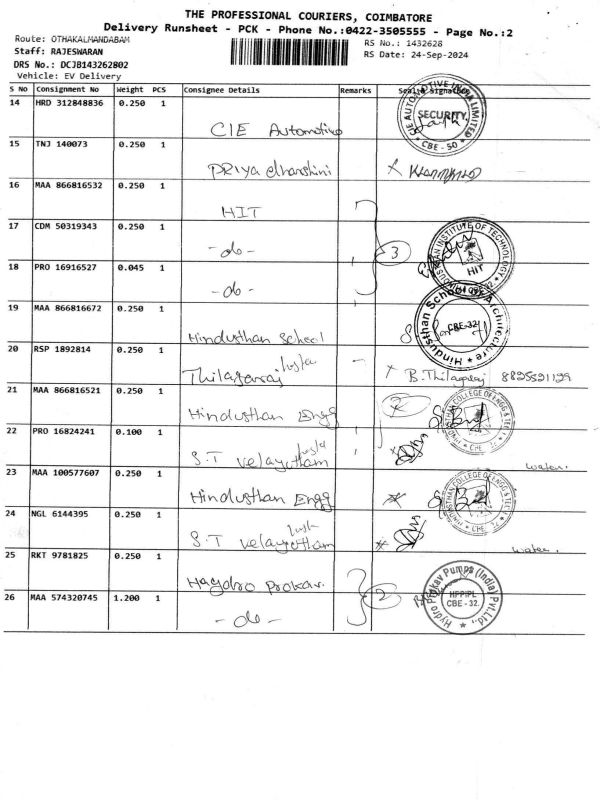 THE PROFESSIONAL COURIERS, COIMBATORE
Delivery Runsheet - PCK - Phone No.:0422-3505555 - Page No.:2
Route: OTHAKALMANDABAM
RS No.: 1432628
Staff: RAJESWARAN
RS Date: 24-Sep-2024
DRS No.: DCJB143262802
Vehicle: EV Delivery
S No Consignment No Weight PCS Consignee Details Remarks Seal & Signature
14 HRD 312848836 0.250 1
CIE Automotive
SECURITY
CBE - 50
15 TNJ 140073 0.250 1
Priya
16 MAA 866816532 0.250 1
HIT
17 CDM 50319343 0.250 1
- do -
3
HINDUSTHAN INSTITUTE OF TECHNOLOGY
HIT
18 PRO 16916527 0.045 1
- do -
19 MAA 866816672 0.250 1
Hindusthan School
Hindusthan School of Architecture
CBE-32
20 RSP 1892814 0.250 1
Thilagaraj
B. Thilagaraj
21 MAA 866816521 0.250 1
Hindusthan Engg
2
22 PRO 16824241 0.100 1
S.T Velayutham
water.
23 MAA 100577607 0.250 1
Hindusthan Engg
24 NGL 6144395 0.250 1
S.T Velayutham
water.
25 RKT 9781825 0.250 1
Haydro Prokav.
2
Hydro Prokav Pumps (India) Pvt.Ltd.,
HPPIPL
CBE - 32.
26 MAA 574320745 1.200 1
- do -